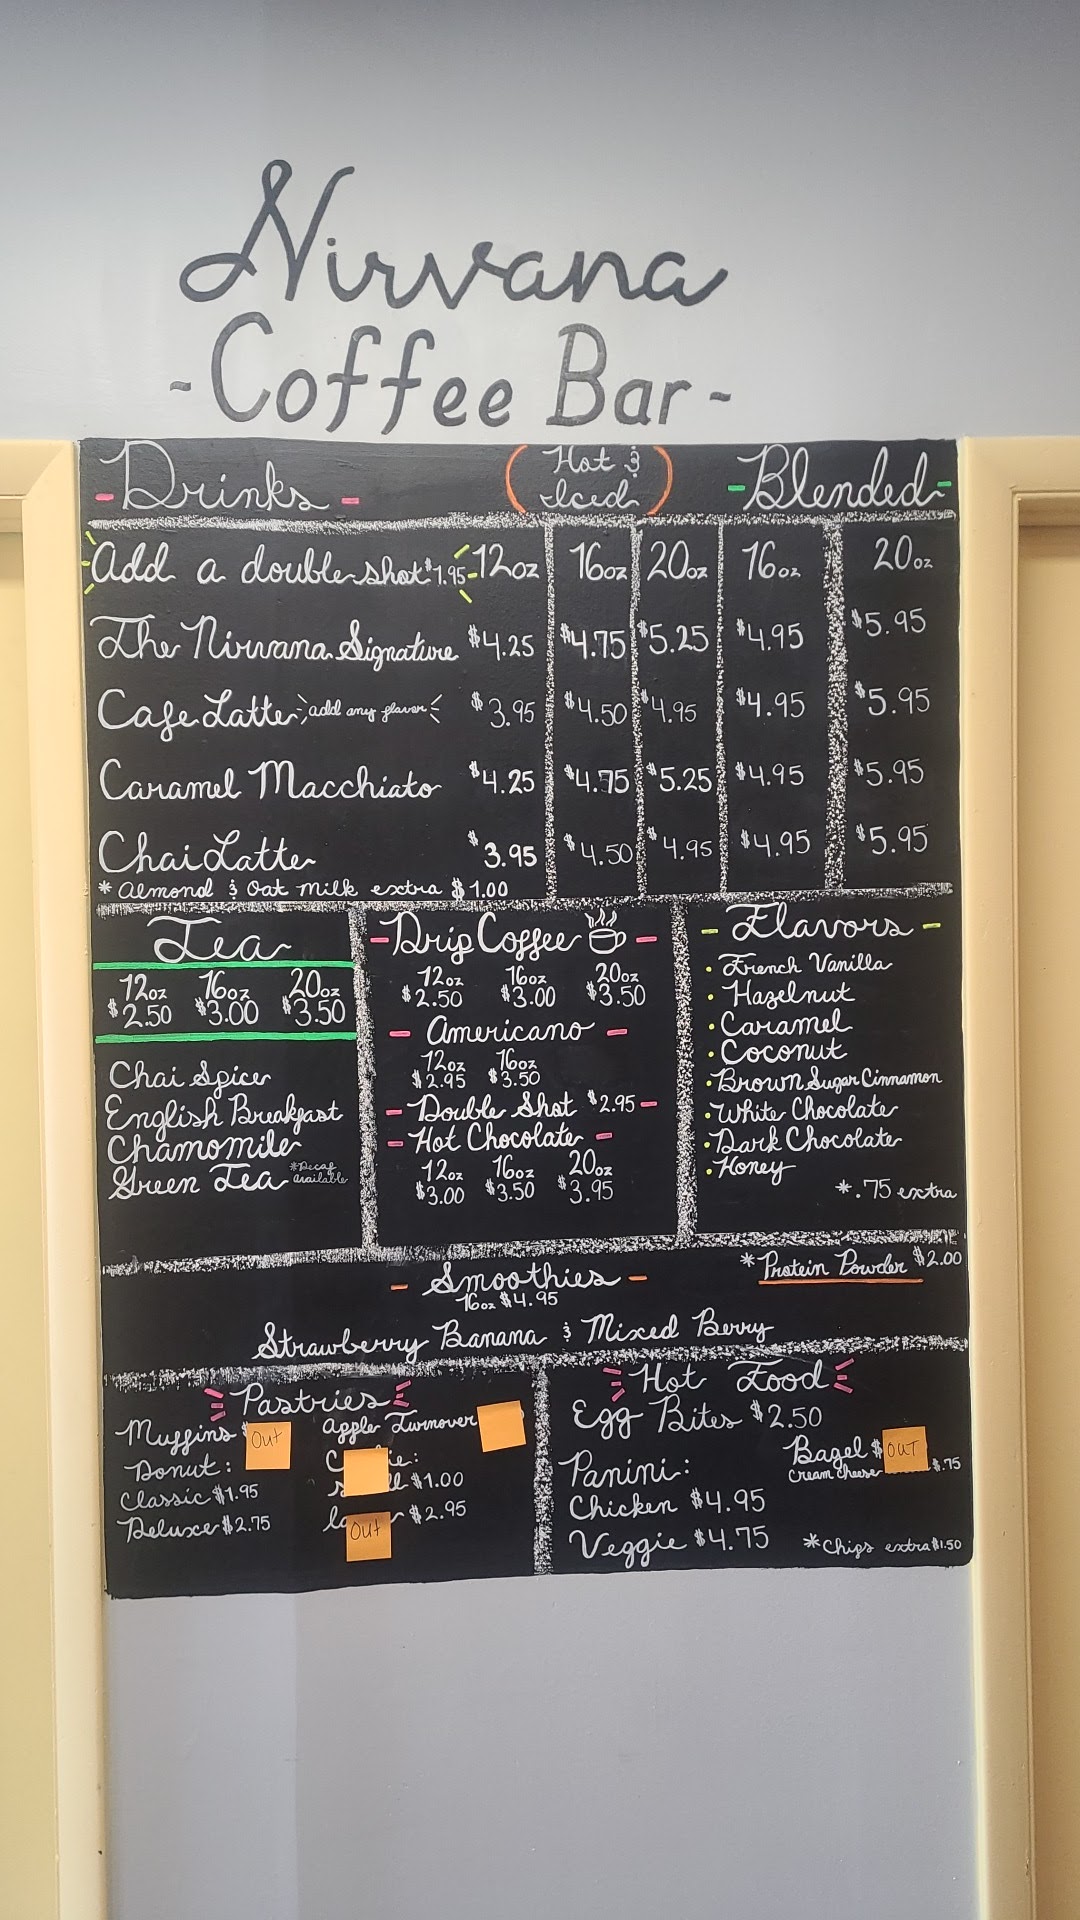 Nirvana
-Coffee Bar-
- Drinks -
(Hot &
Iced)
- Blended -
Add a double shot $1.95 12oz 16oz 20oz 16oz 20oz
The Nirvana Signature $4.25 $4.75 $5.25 $4.95 $5.95
Cafe Latte add any flavor $3.95 $4.50 $4.95 $4.95 $5.95
Caramel Macchiato $4.25 $4.75 $5.25 $4.95 $5.95
Chai Latte $3.95 $4.50 $4.95 $4.95 $5.95
* Almond & Oat milk extra $1.00
Tea
12oz 16oz 20oz
$2.50 $3.00 $3.50
Chai Spice
English Breakfast
Chamomile
Green Tea *Decaf
available
- Drip Coffee -
12oz 16oz 20oz
$2.50 $3.00 $3.50
- Americano -
12oz 16oz
$2.95 $3.50
- Double Shot $2.95 -
- Hot Chocolate -
12oz 16oz 20oz
$3.00 $3.50 $3.95
- Flavors -
• French Vanilla
• Hazelnut
• Caramel
• Coconut
• Brown Sugar Cinnamon
• White Chocolate
• Dark Chocolate
• Honey
*.75 extra
- Smoothies -
16oz $4.95
* Protein Powder $2.00
Strawberry Banana & Mixed Berry
Pastries
Muffins $ Out
Donut:
Classic $1.95
Deluxe $2.75
Apple Turnover
$1.00
Out $2.95
Hot Food
Egg Bites $2.50
Bagel $ OUT
cream cheese $.75
Panini:
Chicken $4.95
Veggie $4.75
*Chips extra $1.50